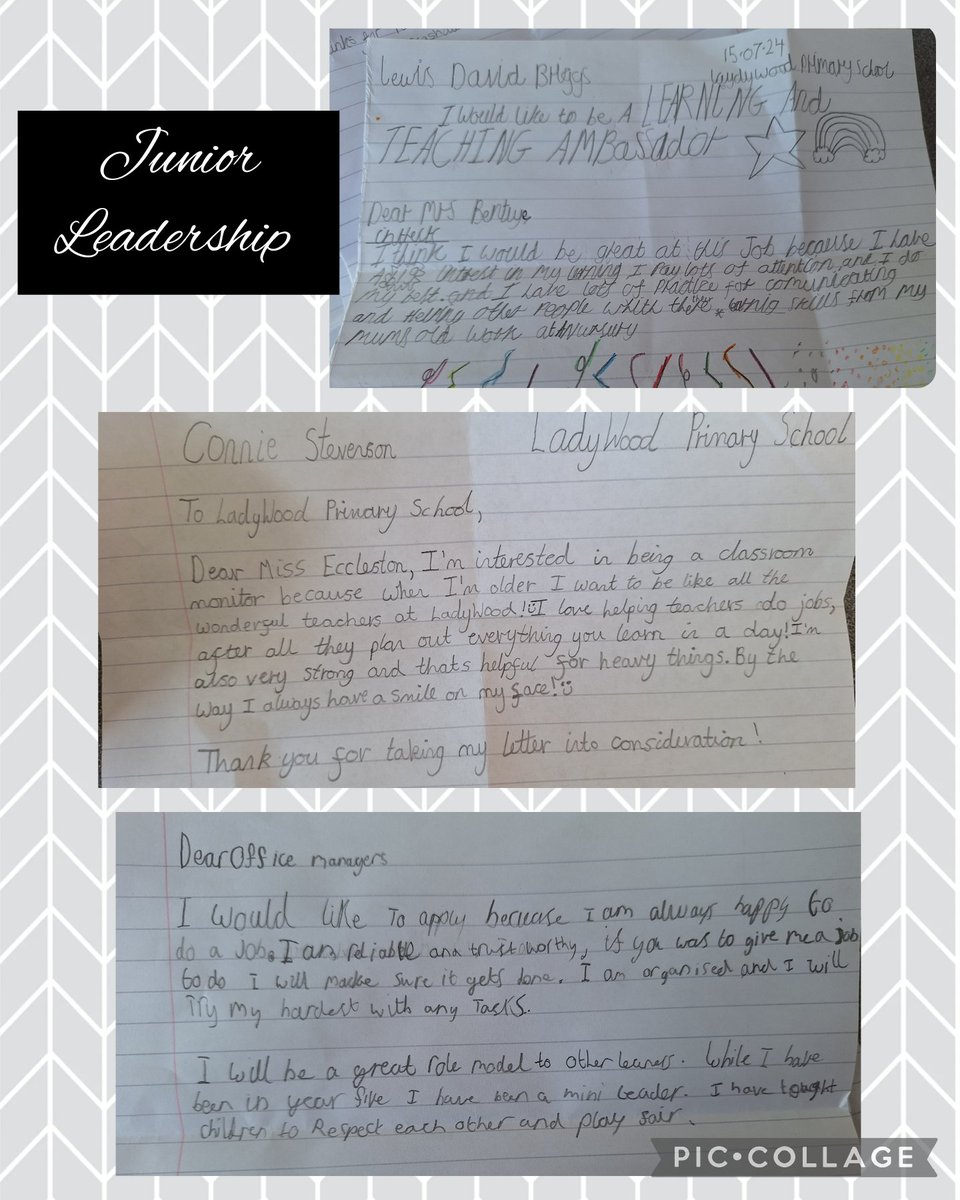 Junior
Leadership
15.07.24
Lewis David Briggs
Ladywood Primary School
I would like to be A LEARNING And
TEACHING AMBASADOR
Dear Mrs
I think I would be great at this Job because I have
interest in my lerning I Pay lots of attention and I do
my best. and I have lots of Practice for comunicating
and Helping other People skills from my
mums old work at Nursury
Connie Stevenson
LadyWood Primary School
To LadyWood Primary School,
Dear Miss Eccleston, I'm interested in being a classroom
monitor because when I'm older I want to be like all the
wonderful teachers at Ladywood! I love helping teachers do jobs,
after all they plan out everything you learn in a day! I'm
also very strong and thats helpful for heavy things. By the
way I always have a smile on my face!
Thank you for taking my letter into consideration!
Dear Office managers
I would like To apply because I am always happy to
do a Job. I am reliable and trustworthy, if you was to give me a Job
to do I will make sure it gets done. I am organised and I will
Try my hardest with any Tasks.
I will be a great role model to other learners. While I have
been in year five I have been a mini leader. I have tought
children to Respect each other and play fair.
PIC•COLLAGE